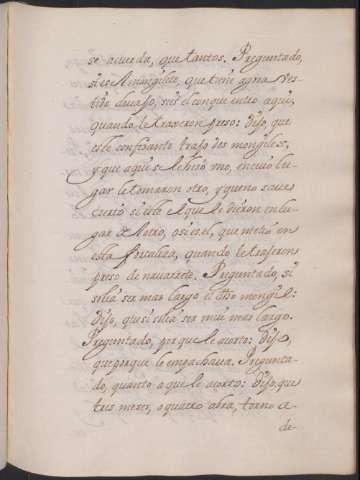 se acuerda, que tantos. Preguntado,
si es el monguilete, que tiene y una vez
tido duca so, si es el con que entro aqui,
quando le traxeron preso: Dijo, que
este confesante trajo dos mongiles,
y que aqui se le hizo uno, en cuio lu-
gar le tomaron otro, y que no se acu-
erda si este el que le dieron en lu-
gar del otro, o si es el, que metió en
esta fortaleza, quando le trajeron
preso de navarrete. Preguntado, si
solia ser mas largo el dho mongil:
Dijo, que si solia ser mui mas largo.
Preguntado, por que le acorto: Dijo,
que porque le empachava. Pregunta-
do, quanto a que le acorto: Dijo, que
tres meses, o quatro abra, torno a
de